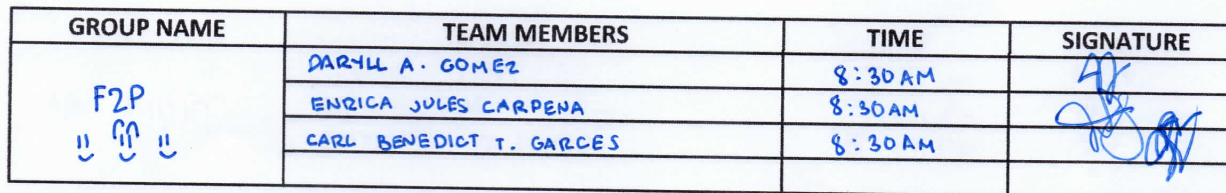 GROUP NAME TEAM MEMBERS TIME SIGNATURE
DARYLL A. GOMEZ 8:30 AM
F2P
ENRICA JULES CARPENA 8:30 AM
CARL BENEDICT T. GARCES 8:30 AM